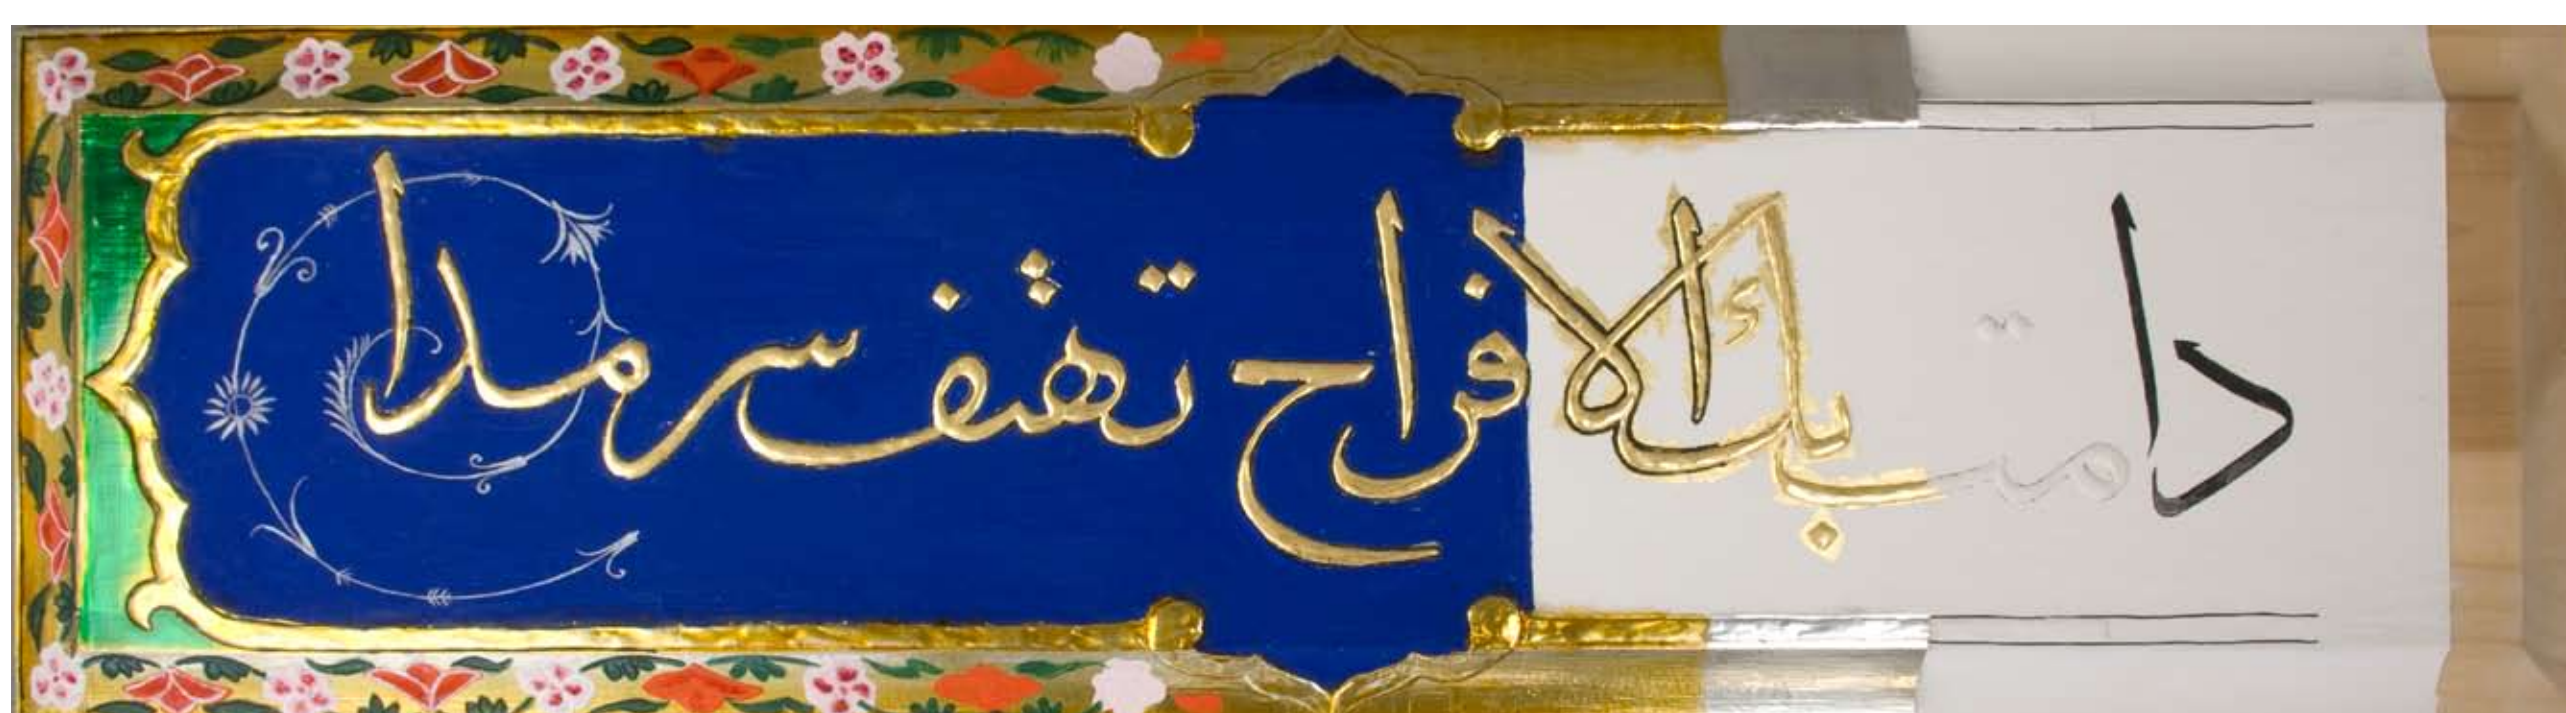 دامت بك الافراح تهتف سرمدا